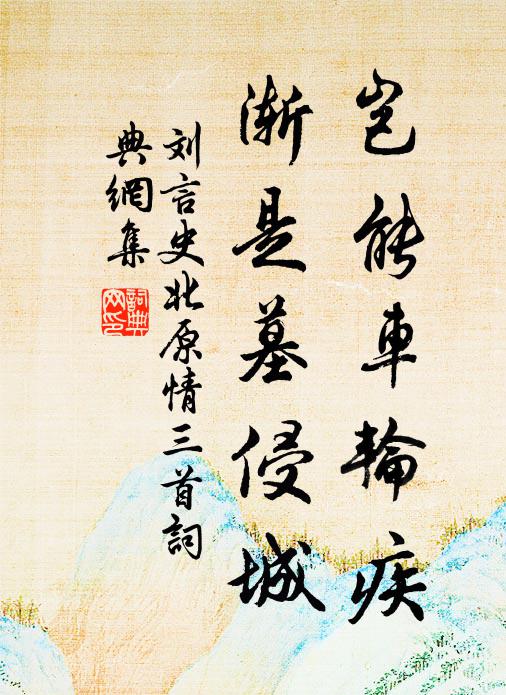 岂能車輪疾
渐是墓侵城
刘言史北原情三首詞
典網集
詞典
网印